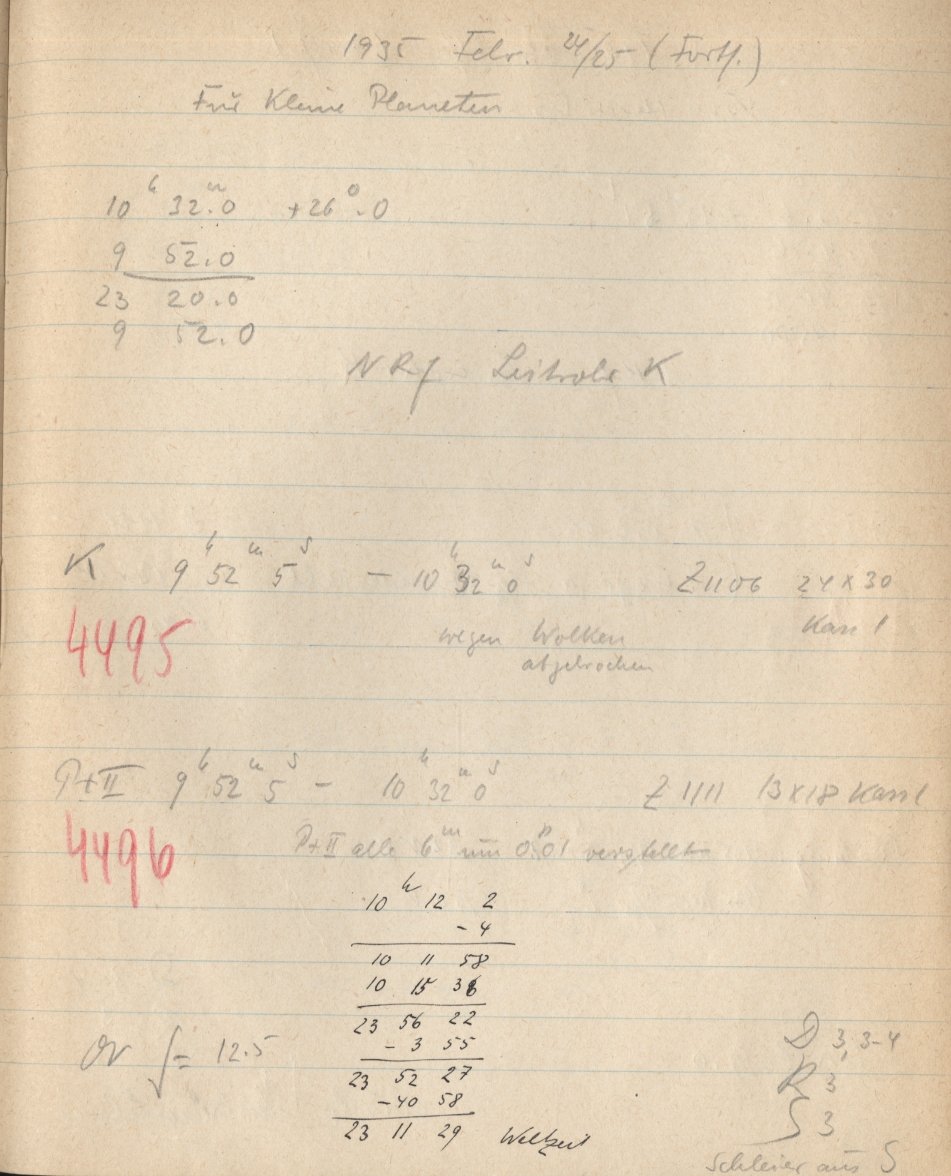 1935 Febr. 24/25 (Forts.)
Für Kleine Planeten
10h 32m.0 +26°.0
9 52.0
23 20.0
9 52.0
Leitrohr K
K 9h 52m 5s – 10h 32m 0s Z1106 24 x 30
4495 wegen Wolken Kass 1
abgebrochen
P+II 9h 52m 5s – 10h 32m 0s Z 1111 13 x 18 Kass 1
4496 P+II alle 6m um 0.01 verstellt
10h 12 2
- 4
10 11 58
10 15 36
23 56 22
- 3 55
23 52 27
-40 58
23 11 29 Weltzeit
= 12.5
D 3, 3-4
R 3
S 3
Schleier aus S